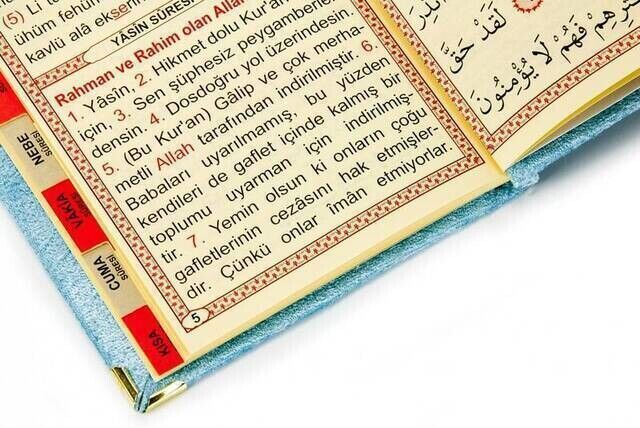 (5) Li t
ühüm fehüm
kavlü alâ ekserih
YÂSİN SURESİ
Rahman ve Rahim olan Allah
1. Yâsîn, 2. Hikmet dolu Kur'an
için, 3. Sen şüphesiz peygamberler-
densin. 4. Dosdoğru yol üzerindesin.
5. (Bu Kur'an) Gâlip ve çok merha-
metli Allah tarafından indirilmiştir. 6.
Babaları uyarılmamış, bu yüzden
kendileri de gaflet içinde kalmış bir
toplumu uyarman için indirilmiş-
tir. 7. Yemin olsun ki onların çoğu
gafletlerinin cezâsını hak etmişler-
dir. Çünkü onlar imân etmiyorlar.
5
NEBE SÛRESİ
VÂKIA SÛRESİ
CUMA SÛRESİ
KISA
لَقَدْ حَقَّ
فَهُمْ لَا يُؤْمِنُونَ